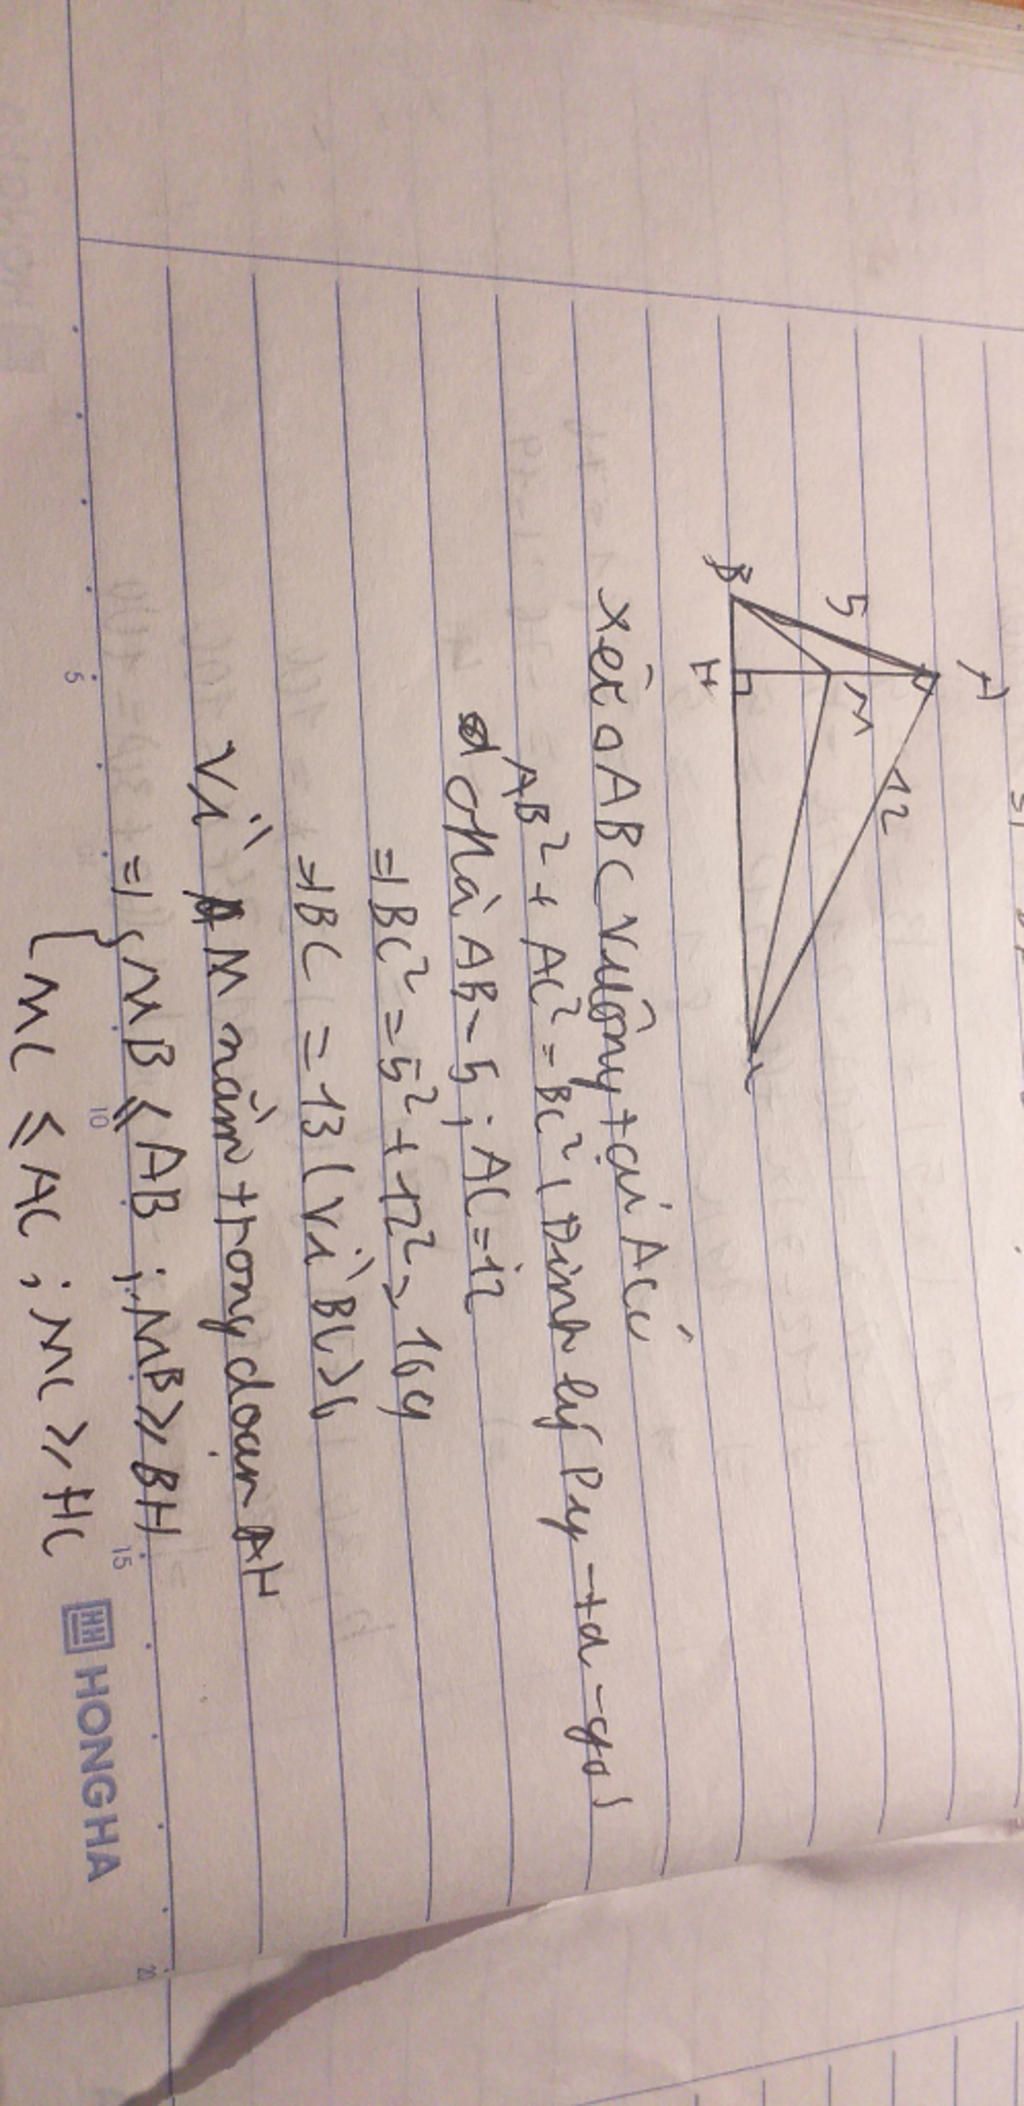 A
5
12
M
B
H
C
xét △ABC vuông tại A có
AB² + AC² = BC² (Định lý Py-ta-go)
mà AB = 5; AC = 12
=> BC² = 5² + 12² = 169
=> BC = 13 (vì BC > 0
Vì M nằm trong đoạn AH
=> { MB ≤ AB ; MB ≥ BH
{ MC ≤ AC ; MC ≥ HC
5
10
15
20
HH HONGHA